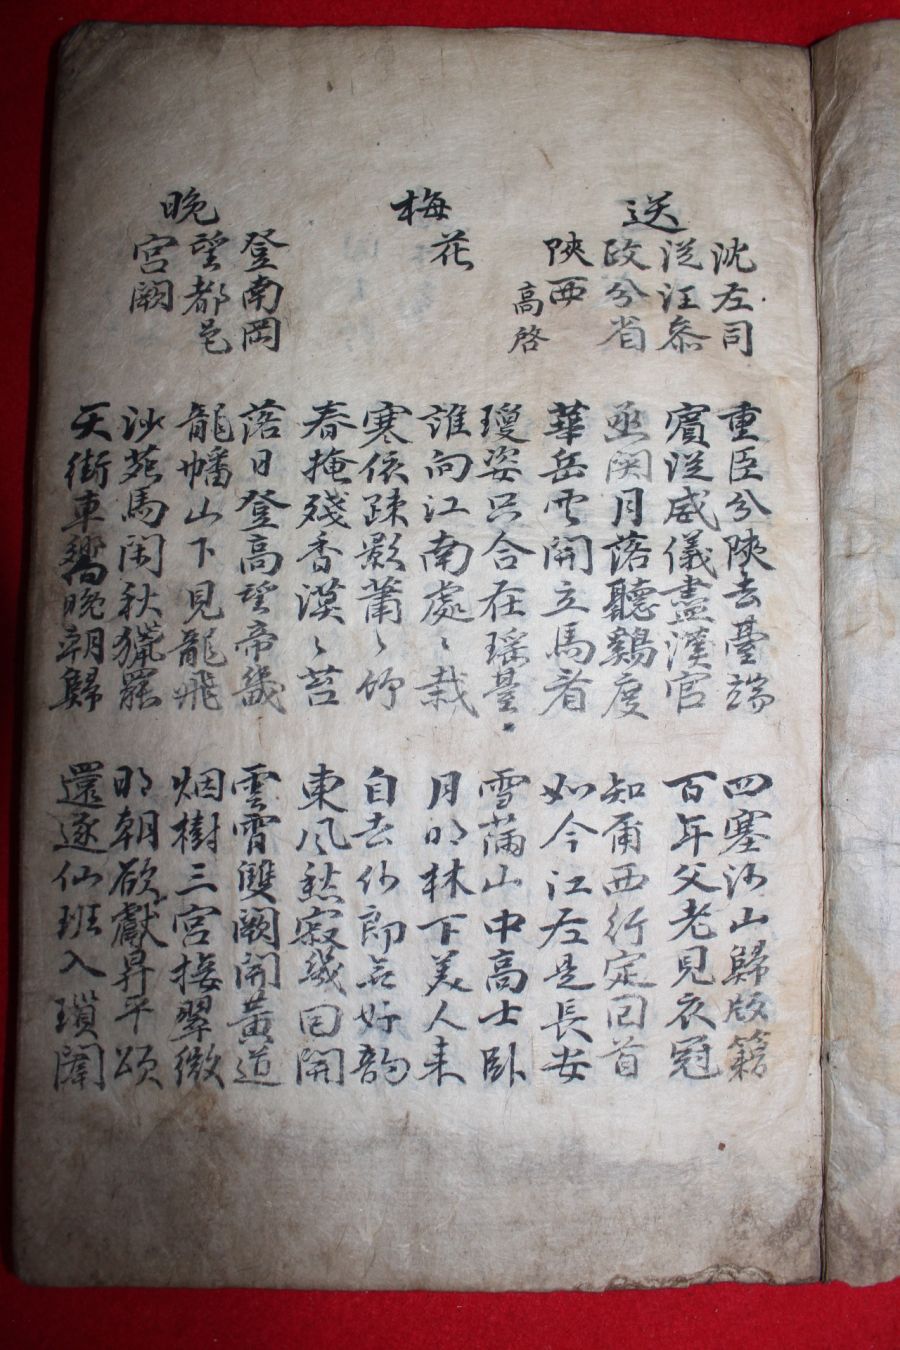 送
沈左司
從汪叅
政分省
陝西
高啓
重臣分陝去臺端 四塞河山歸版籍
賓從威儀盡漢官 百年父老見衣冠
函関月落聽鷄度 知爾西行定回首
華岳雲開立馬看 如今江左是長安
梅
花
瓊姿只合在瑤臺 雪滿山中高士臥
誰向江南處々栽 月明林下美人来
寒依疎影蕭々竹 自去何郎無好韵
春掩殘香漠々苔 東風愁寂幾回開
晩
登南岡
望都邑
宮闕
落日登高望帝畿 雲霄雙闕開黃道
龍幡山下見龍飛 烟樹三宮接翠微
沙苑馬閑秋獵罷 明朝欲獻昇平頌
天街車響晩朝歸 還逐仙班入瑣闈